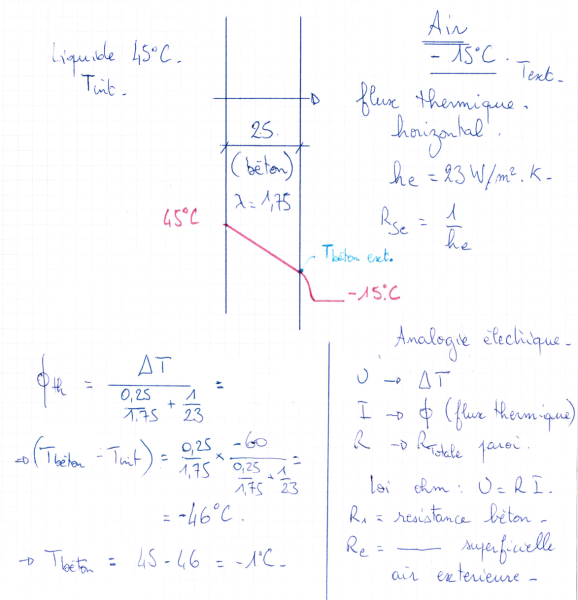 Liquide 45°C.
Tint.
Air
- 15°C.
Text.
flux thermique.
horizontal.
25
(béton)
λ = 1,75
he = 23 W/m². K.
RSe = 1/he
45°C
Tbéton ext.
-15°C
ϕth = ΔT / (0,25/1,75 + 1/23) =
⇒ (Tbéton - Tint) = 0,25/1,75 × -60 / (0,25/1,75 + 1/23) =
= -46°C.
→ Tbéton = 45 - 46 = -1°C.
Analogie électrique.
U → ΔT
I → ϕ (flux thermique)
R → RTotale paroi.
loi ohm : U = R I.
R1 = resistance béton.
Re = —— superficielle
air exterieure.